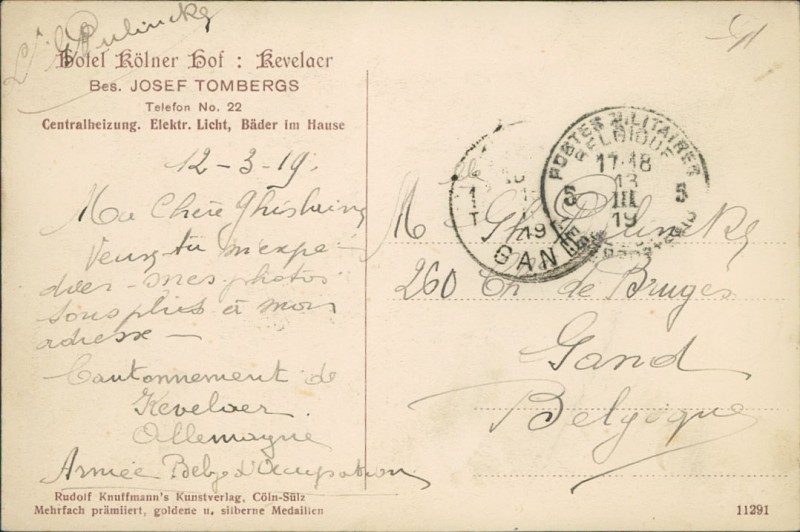 Hotel Kölner Hof : Kevelaer
Bes. JOSEF TOMBERGS
Telefon No. 22
Centralheizung. Elektr. Licht, Bäder im Hause
12-3-19.
Ma Chère Ghislaine
Veux-tu m'expé-
dier - mes photos
sous plis à mon
adresse -
Cantonnement de
Kevelaer.
Allemagne
Armée Belge d'Occupation
Rudolf Knuffmann's Kunstverlag, Cöln-Sülz
Mehrfach prämiiert, goldene u. silberne Medaillen
POSTES MILITAIRES
BELGIQUE
17-18
13
III
19
5
5
19
GAN
M
260 Ch de Bruges
Gand
Belgique
11291